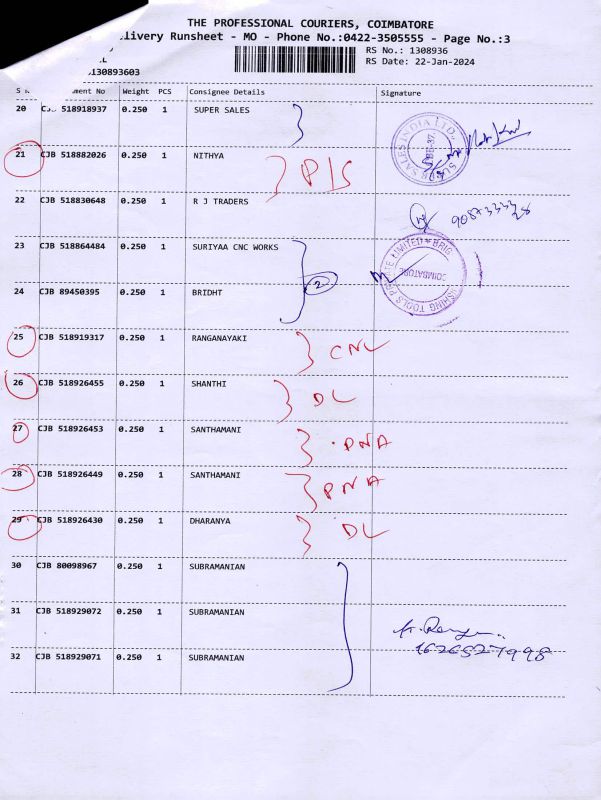 THE PROFESSIONAL COURIERS, COIMBATORE
livery Runsheet - MO - Phone No.:0422-3505555 - Page No.:3
RS No.: 1308936
RS Date: 22-Jan-2024
130893603
ment No Weight PCS Consignee Details Signature
20 CJB 518918937 0.250 1 SUPER SALES
21 CJB 518882026 0.250 1 NITHYA P/S
22 CJB 518830648 0.250 1 R J TRADERS
23 CJB 518864484 0.250 1 SURIYAA CNC WORKS
2
24 CJB 89450395 0.250 1 BRIDHT
25 CJB 518919317 0.250 1 RANGANAYAKI CNL
26 CJB 518926455 0.250 1 SHANTHI DL
27 CJB 518926453 0.250 1 SANTHAMANI PNA
28 CJB 518926449 0.250 1 SANTHAMANI PNA
29 CJB 518926430 0.250 1 DHARANYA DL
30 CJB 80098967 0.250 1 SUBRAMANIAN
31 CJB 518929072 0.250 1 SUBRAMANIAN
32 CJB 518929071 0.250 1 SUBRAMANIAN